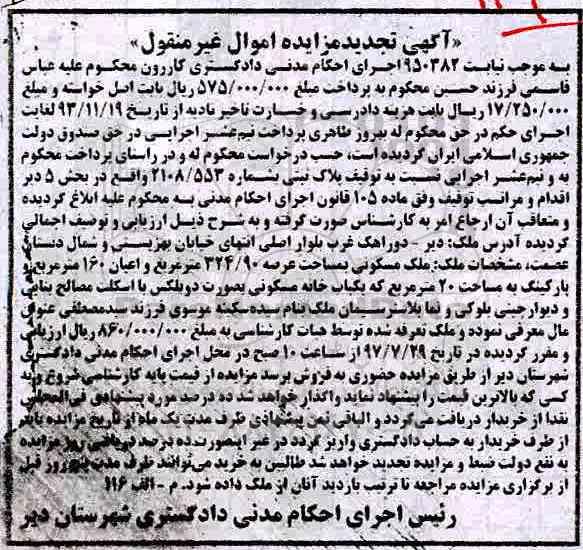 «آگهی تجدیدمزایده اموال غیرمنقول»
به موجب نیابت ۹۵۰۳۸۲ اجرای احکام مدنی دادگستری کازرون محکوم علیه عباس
قاسمی فرزند حسین محکوم به پرداخت مبلغ ۵۷۵/۰۰۰/۰۰۰ ریال بابت اصل خواسته و مبلغ
۱۷/۲۵۰/۰۰۰ ریال بابت هزینه دادرسی و خسارت تاخیر تادیه از تاریخ ۹۳/۱۱/۱۹ لغایت
اجرای حکم در حق محکوم له بهروز طاهری پرداخت نیم‌عشر اجرایی در حق صندوق دولت
جمهوری اسلامی ایران گردیده است، حسب درخواست محکوم له و در راستای پرداخت محکوم
به و نیم‌عشر اجرایی نسبت به توقیف پلاک ثبتی بشماره ۲۱۰۸/۵۵۳ واقع در بخش ۵ دیر
اقدام و مراتب توقیف وفق ماده ۱۰۵ قانون اجرای احکام مدنی به محکوم علیه ابلاغ گردیده
و متعاقب آن ارجاع امر به کارشناس صورت گرفته و به شرح ذیل ارزیابی و توصیف اجمالی
گردیده آدرس ملک: دیر - دوراهک غرب بلوار اصلی انتهای خیابان بهزیستی و شمال دبستان
عصمت، مشخصات ملک: ملک مسکونی بمساحت عرصه ۳۲۴/۹۰ مترمربع و اعیان ۱۶۰ مترمربع و
پارکینگ به مساحت ۲۰ مترمربع که یکباب خانه مسکونی بصورت دوبلکس با اسکلت مصالح بنایی
و دیوارچینی بلوکی و نما پلاسترسیمان ملک بنام سیده سکینه موسوی فرزند سیدمصطفی عنوان
مال معرفی نموده و ملک تعرفه شده توسط هیات کارشناسی به مبلغ ۸۶۰/۰۰۰/۰۰۰ ریال ارزیابی
و مقرر گردیده در تاریخ ۹۷/۷/۲۹ از ساعت ۱۰ صبح در محل اجرای احکام مدنی دادگستری
شهرستان دیر از طریق مزایده حضوری به فروش برسد مزایده از قیمت پایه کارشناسی شروع و به
کسی که بالاترین قیمت را پیشنهاد نماید واگذار خواهد شد ده درصد مورد پیشنهادی فی‌المجلس
نقدا از خریدار دریافت می‌گردد و الباقی ثمن پیشنهادی ظرف مدت یک ماه از تاریخ مزایده باید
از طرف خریدار به حساب دادگستری واریز گردد در غیر اینصورت ده درصد دریافتی روز مزایده
به نفع دولت ضبط و مزایده تجدید خواهد شد طالبین به خرید می‌توانند ظرف مدت پنج روز قبل
از برگزاری مزایده مراجعه تا ترتیب بازدید آنان از ملک داده شود. م - الف ۱۱۶
رئیس اجرای احکام مدنی دادگستری شهرستان دیر